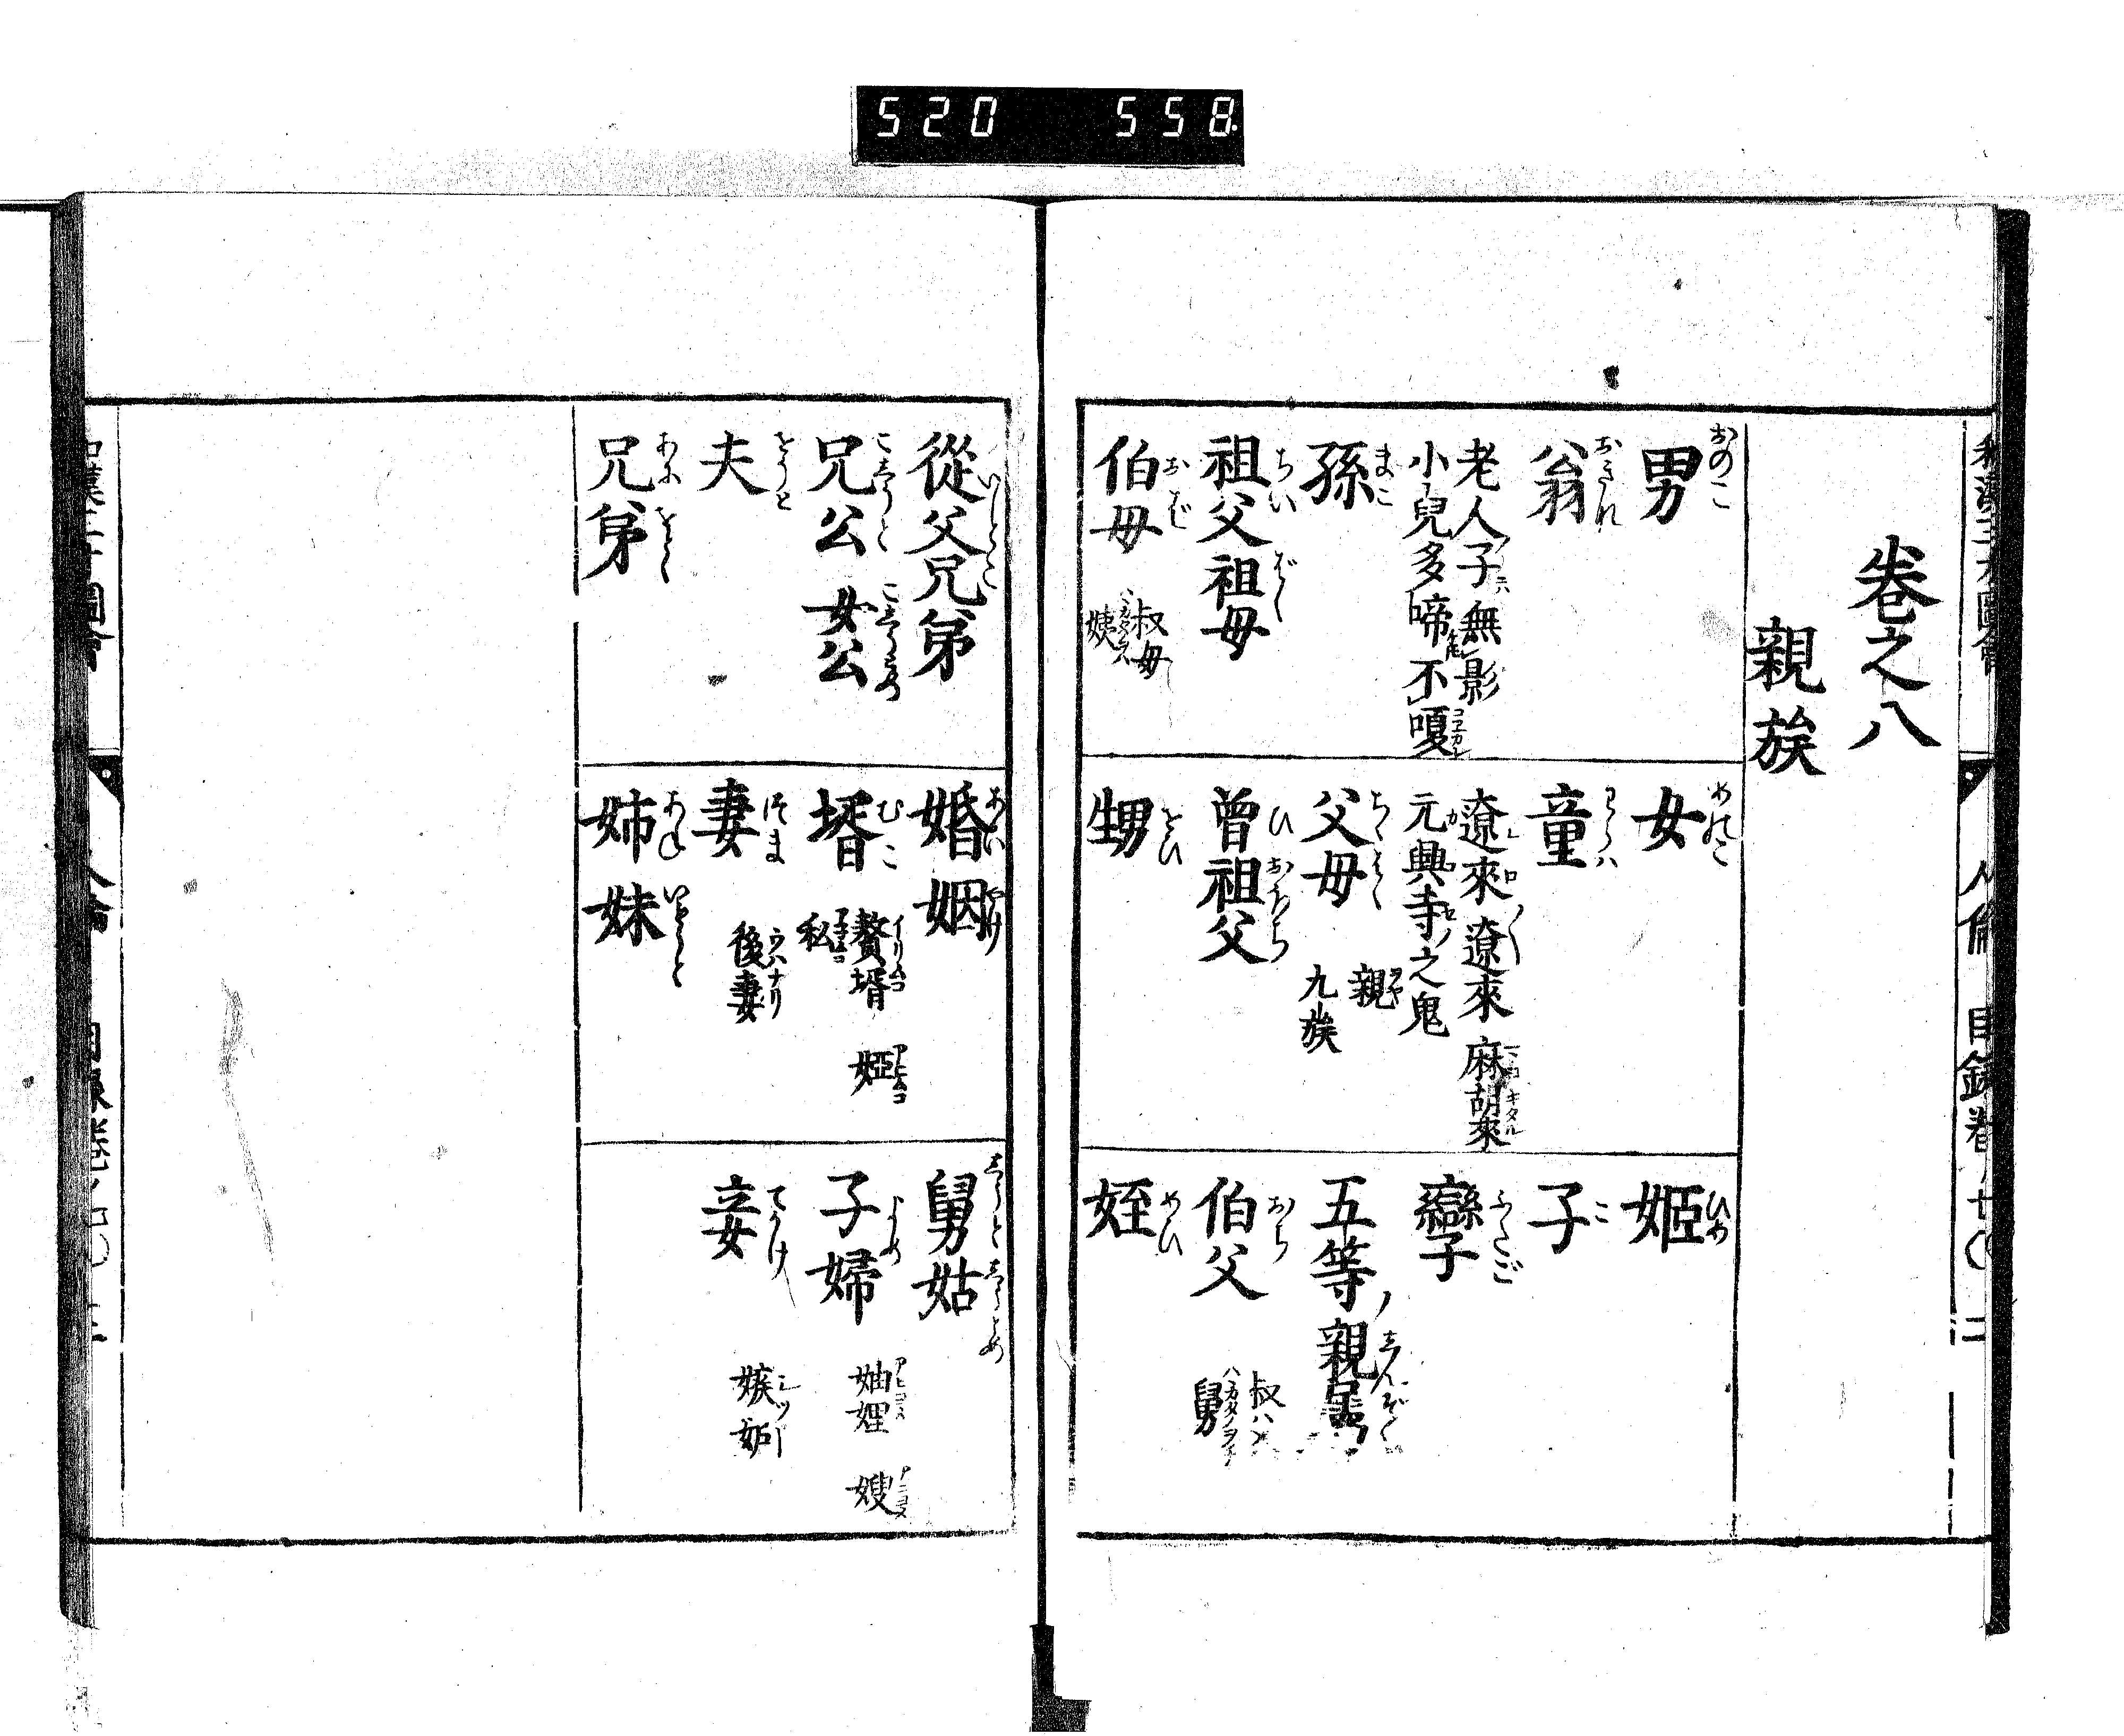 520 558
卷之八
親族
男 おのこ
女 めのこ
姫 ひめ
翁 おきな
童 わらハ
子 こ
老人ノ子ニハ無影
小兒多啼不嗄
遼來遼來 麻胡來
元興寺之鬼
孿子 ふたご
孫 まご
父母 ちちはは 親 ヲヤ 九族
五等ノ親
祖父 ちい 祖母 ばば
曾祖父 ひおほぢ
伯父 おぢ 叔 舅
伯母 おば 叔母 姨
甥 をひ
姪 めひ
從父兄弟 いとこ
婚姻 あいやけ
舅姑 しうとしうとめ
兄公 こじうと 女公 こじうとめ
壻 むこ 贅壻 イリムコ 私 婭 アヒムコ
子婦 よめ 妯娌 嫂 アニヨメ
夫 をつと
妻 つま 後妻 ウハナリ
妾 てかけ 嫉妬
兄弟 あにおとと
姉妹 あねいもうと
人倫 目録